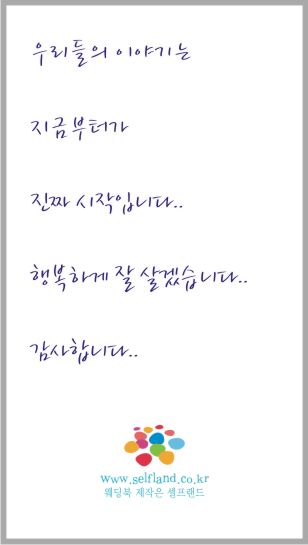 우리들의 이야기는
지금부터가
진짜 시작입니다..
행복하게 잘 살겠습니다..
감사합니다..
www.selfland.co.kr
웨딩북 제작은 셀프랜드